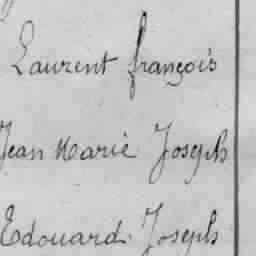 Laurent françois
Jean Marie Joseph
Edouard Joseph